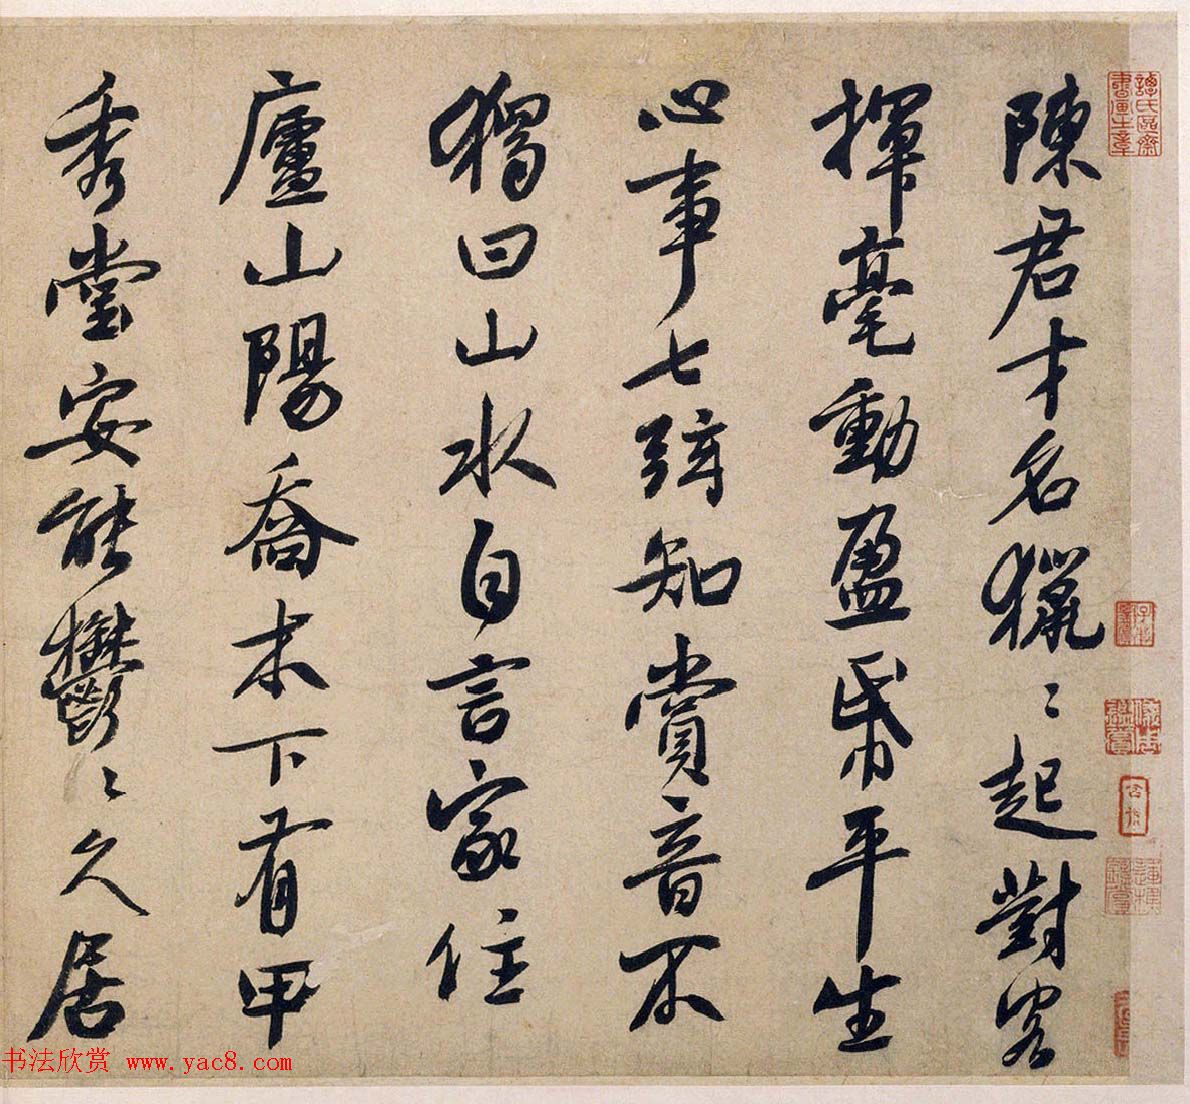 陳君才名獵〻起對客
揮毫動盈帋平生
心事七弦知賞音不
獨曰山水自言家住
廬山陽喬木下有甲
秀堂安能鬱〻久居
书法欣赏 www.yac8.com